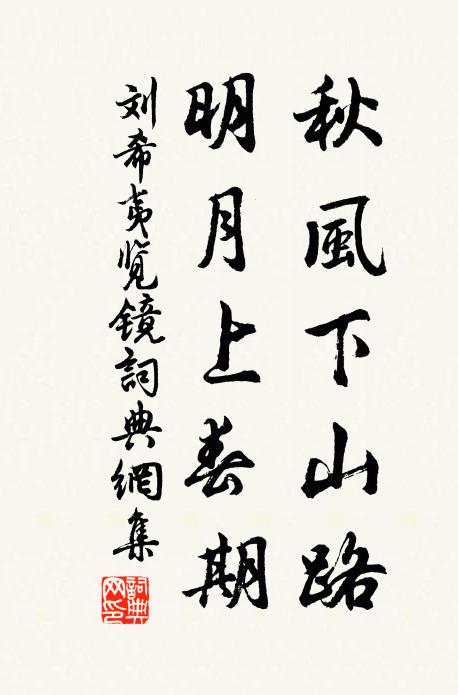 秋風下山路
明月上春期
刘希夷览鏡詞典網集
詞典網印